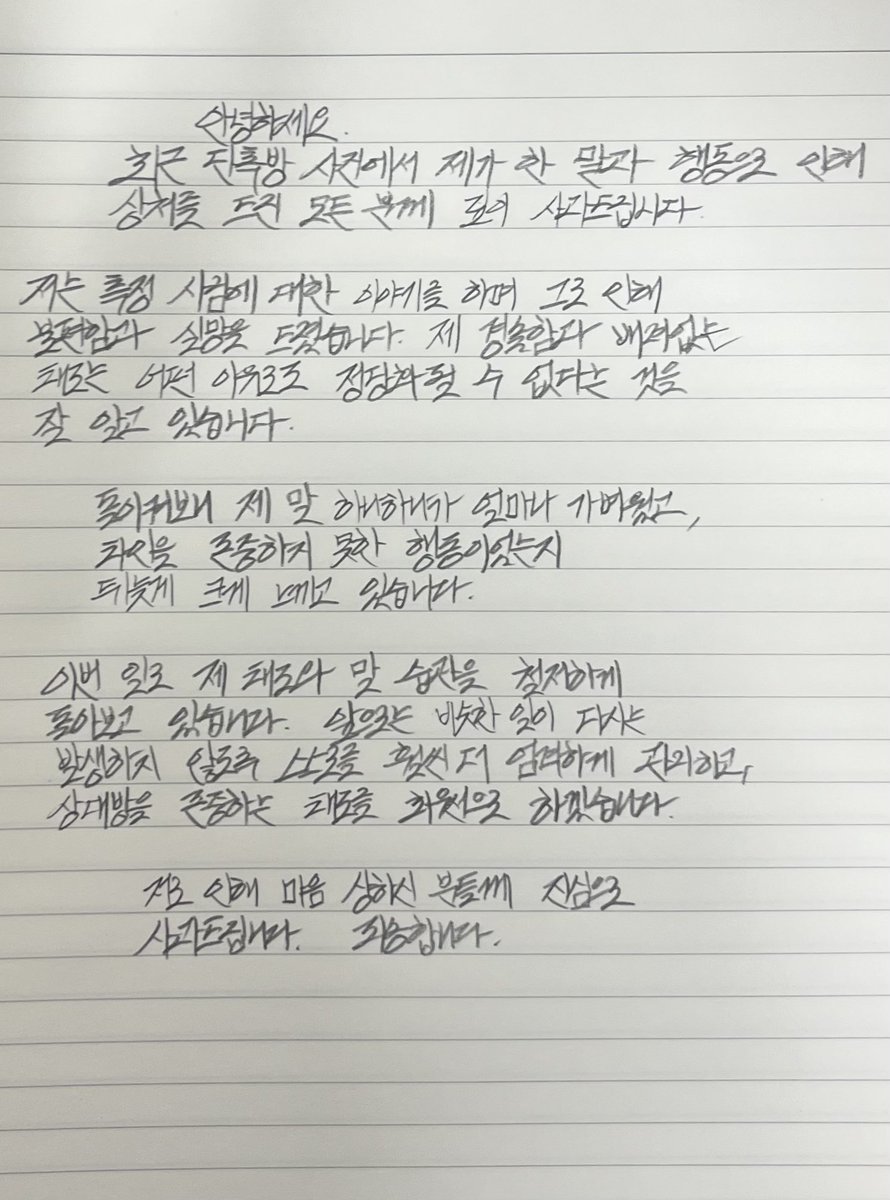 안녕하세요.
최근 단톡방 사건에서 제가 한 말과 행동으로 인해
상처를 드린 모든 분께 깊이 사과드립니다.
저는 특정 사람에 대한 이야기를 하며 그로 인해
불편함과 실망을 드렸습니다. 제 경솔함과 배려없는
태도는 어떤 이유로도 정당화될 수 없다는 것을
잘 알고 있습니다.
돌아켜보니 제 말 하나하나가 얼마나 가벼웠고,
타인을 존중하지 못한 행동이었는지
뒤늦게 크게 느끼고 있습니다.
이번 일로 제 태도와 말 습관을 철저하게
돌아보고 있습니다. 앞으로는 비슷한 일이 다시는
발생하지 않도록 스스로를 훨씬 더 엄격하게 관리하고,
상대방을 존중하는 태도를 최우선으로 하겠습니다.
저로 인해 마음 상하신 분들께 진심으로
사과드립니다. 죄송합니다.